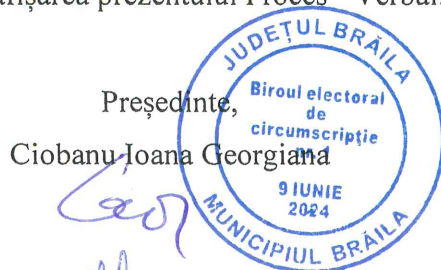 afișarea prezentului Proces – Verbal
Președinte,
Ciobanu Ioana Georgiana
JUDEȚUL BRĂILA
Biroul electoral
de
circumscripție
9 IUNIE
2024
MUNICIPIUL BRĂILA